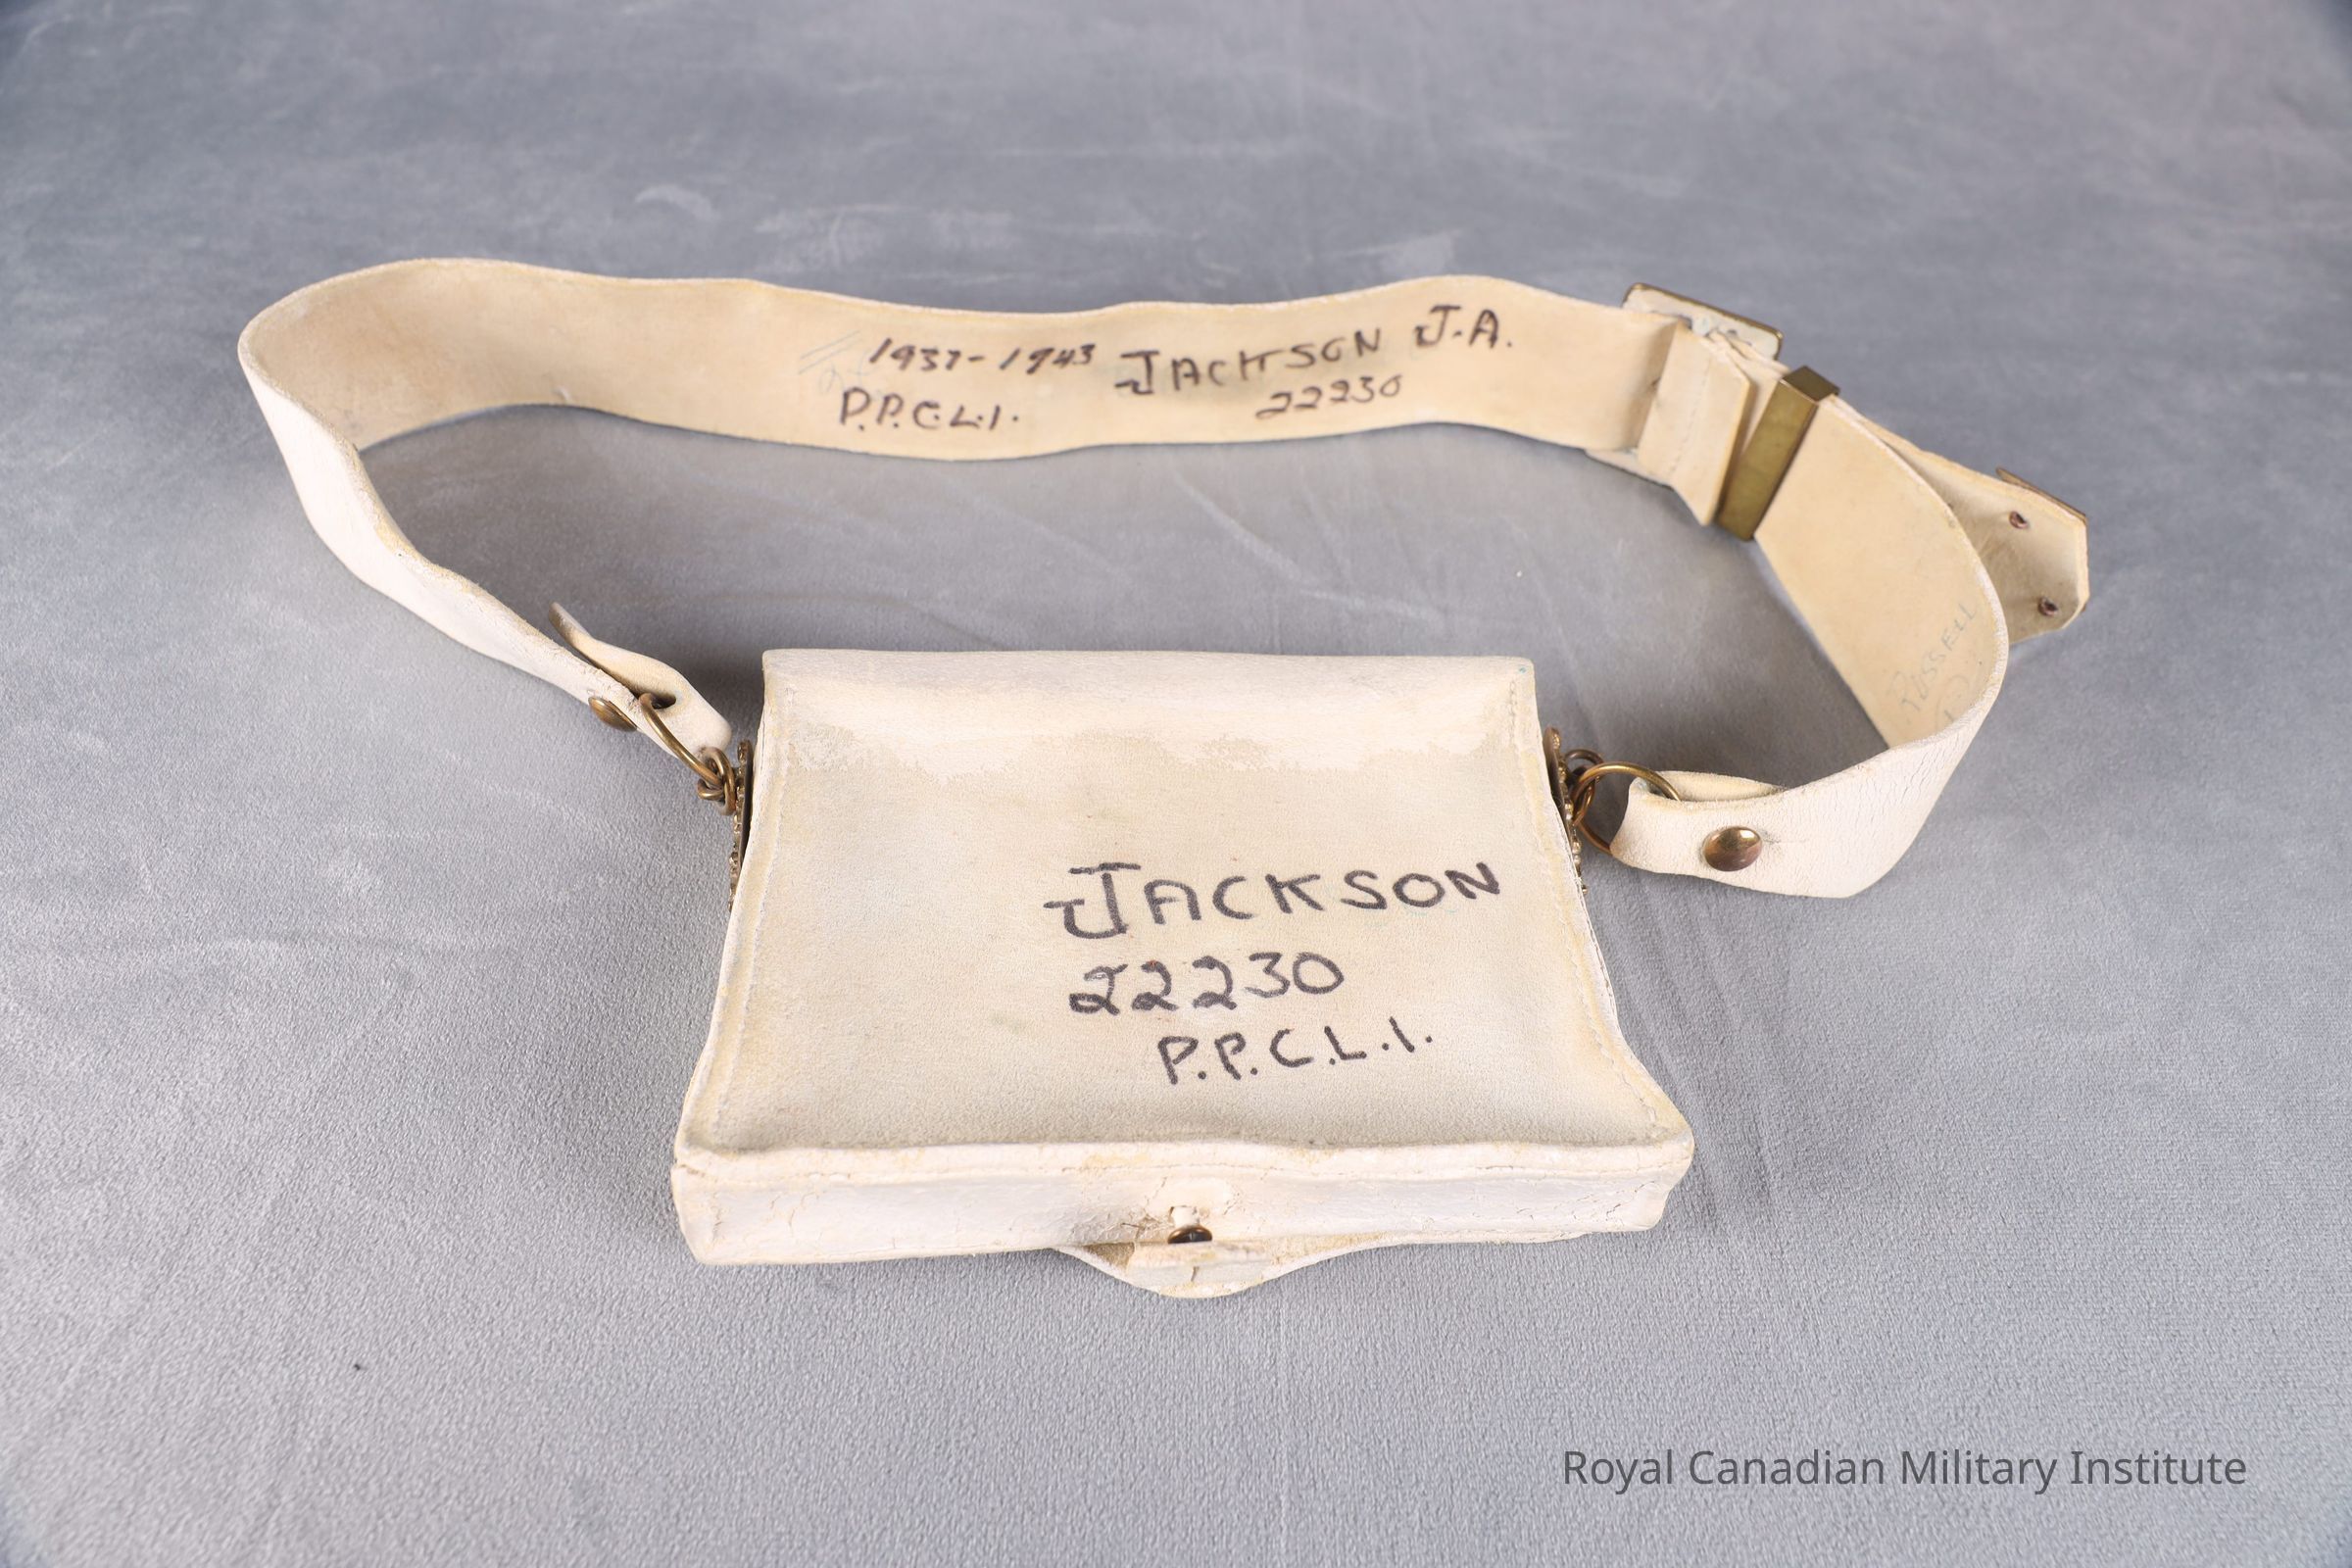 1937-1943 JACKSON J.A.
P.P.C.L.I. 22230
RUSSELL
JACKSON
22230
P.P.C.L.I.
Royal Canadian Military Institute